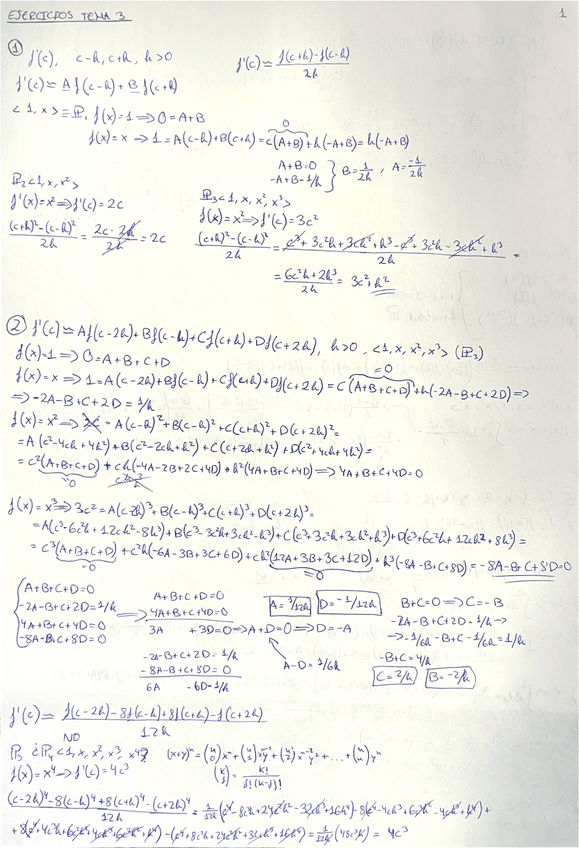 EJERCICIOS TEMA 3
1
① f'(c), c-h, c+h, h>0 f'(c) ≃ (f(c+h)-f(c-h))/2h
f'(c) ≃ A f(c-h) + B f(c+h)
<1, x> ≡ ℙ₁ f(x)=1 ⟹ 0=A+B
f(x)=x ⟹ 1=A(c-h)+B(c+h)=c(A+B)+h(-A+B)=h(-A+B)
0
A+B=0
-A+B=1/h } B=1/2h, A=-1/2h
ℙ₂<1, x, x²>
f'(x)=x²⟹f'(c)=2c
((c+h)²-(c-h)²)/2h = (2c·2h)/2h = 2c
ℙ₃<1, x, x², x³>
f(x)=x³⟹f'(c)=3c²
((c+h)³-(c-h)³)/2h = (c³+3c²h+3ch²+h³-c³+3c²h-3ch²+h³)/2h =
= (6c²h+2h³)/2h = 3c²+h²
② f'(c) ≃ Af(c-2h)+Bf(c-h)+Cf(c+h)+Df(c+2h), h>0, <1, x, x², x³> (ℙ₃)
f(x)=1 ⟹ 0=A+B+C+D
=0
f(x)=x ⟹ 1=A(c-2h)+B(c-h)+C(c+h)+D(c+2h)=c(A+B+C+D)+h(-2A-B+C+2D) ⟹
⟹ -2A-B+C+2D=1/h
f(x)=x² ⟹ 2c = A(c-2h)²+B(c-h)²+C(c+h)²+D(c+2h)²=
=A(c²-4ch+4h²)+B(c²-2ch+h²)+C(c²+2ch+h²)+D(c²+4ch+4h²)=
=c²(A+B+C+D)+ch(-4A-2B+2C+4D)+h²(4A+B+C+4D) ⟹ 4A+B+C+4D=0
=0
f(x)=x³ ⟹ 3c²=A(c-2h)³+B(c-h)³+C(c+h)³+D(c+2h)³=
=A(c³-6c²h+12ch²-8h³)+B(c³-3c²h+3ch²-h³)+C(c³+3c²h+3ch²+h³)+D(c³+6c²h+12ch²+8h³)=
=c³(A+B+C+D)+c²h(-6A-3B+3C+6D)+ch²(12A+3B+3C+12D)+h³(-8A-B+C+8D) = -8A-B+C+8D=0
=0 =0
A+B+C+D=0
-2A-B+C+2D=1/h
4A+B+C+4D=0
-8A-B+C+8D=0
A+B+C+D=0
4A+B+C+4D=0
3A +3D=0 ⟹ A+D=0 ⟹ D=-A
-2A-B+C+2D=1/h
-8A-B+C+8D=0
6A -6D=1/h
A-D=1/6h
A=1/12h D=-1/12h
B+C=0 ⟹ C=-B
-2A-B+C+2D=1/h →
→ -1/6h-B+C-1/6h=1/h
-B+C=4/h
C=2/h B=-2/h
f'(c) ≃ (f(c-2h)-8f(c-h)+8f(c+h)-f(c+2h))/12h
NO
ℙ₃ ¿ℙ₄<1, x, x², x³, x⁴>? (x+y)ⁿ=(n 0)xⁿ+(n 1)xⁿ⁻¹y+(n 2)xⁿ⁻²y²+...+(n n)yⁿ
f(x)=x⁴ ⟹ f'(c)=4c³ (k j)=k!/(j!(k-j)!)
((c-2h)⁴-8(c-h)⁴+8(c+h)⁴-(c+2h)⁴)/12h = 1/12h (c⁴-8c³h+24c²h²-32ch³+16h⁴)-8(c⁴-4c³h+6c²h²-4ch³+h⁴)+
+8(c⁴+4c³h+6c²h²+4ch³+h⁴)-(c⁴+8c³h+24c²h²+32ch³+16h⁴)=1/12h(48c³h)= 4c³